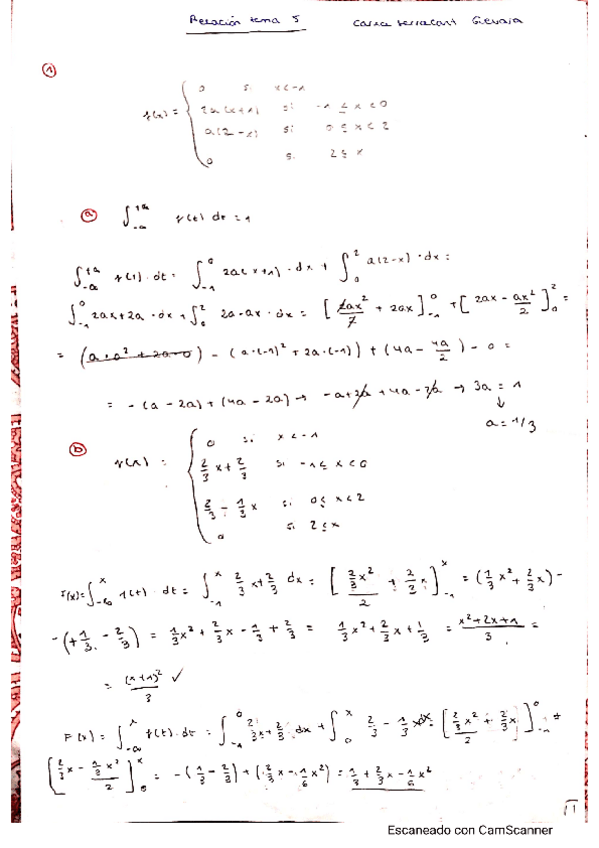 Relación tema 5
①
f(x) = { 0 si x < -1
2a(x+1) si -1 ≤ x < 0
a(2-x) si 0 ≤ x < 2
0 si 2 ≤ x
ⓐ ∫_{-∞}^{+∞} f(t) dt = 1
∫_{-∞}^{+∞} f(t) · dt = ∫_{-1}^{0} 2a(x+1) · dx + ∫_{0}^{2} a(2-x) · dx =
∫_{-1}^{0} 2ax + 2a · dx + ∫_{0}^{2} 2a - ax · dx = [2ax²/2 + 2ax]_{-1}^{0} + [2ax - ax²/2]_{0}^{2} =
= (a·0² + 2a·0) - (a·(-1)² + 2a·(-1)) + (4a - 4a/2) - 0 =
= -(a - 2a) + (4a - 2a) → -a + 2a + 4a - 2a → 3a = 1
↓
a = 1/3
ⓑ f(x) = { 0 si x < -1
2/3 x + 2/3 si -1 ≤ x < 0
2/3 - 1/3 x si 0 ≤ x < 2
0 si 2 ≤ x
F(x) = ∫_{-∞}^{x} f(t) · dt = ∫_{-1}^{x} 2/3 x + 2/3 dx = [(2/3 x²)/2 + 2/3 x]_{-1}^{x} = (1/3 x² + 2/3 x) -
- (+1/3 - 2/3) = 1/3 x² + 2/3 x - 1/3 + 2/3 = 1/3 x² + 2/3 x + 1/3 = (x² + 2x + 1)/3 =
= (x+1)²/3 ✓
F(x) = ∫_{-∞}^{x} f(t) · dt = ∫_{-1}^{0} 2/3 x + 2/3 dx + ∫_{0}^{x} 2/3 - 1/3 x dx = [(2/3 x²)/2 + 2/3 x]_{-1}^{0} +
[2/3 x - (1/3 x²)/2]_{0}^{x} = -(1/3 - 2/3) + (2/3 x - 1/6 x²) = 1/3 + 2/3 x - 1/6 x²
Escaneado con CamScanner